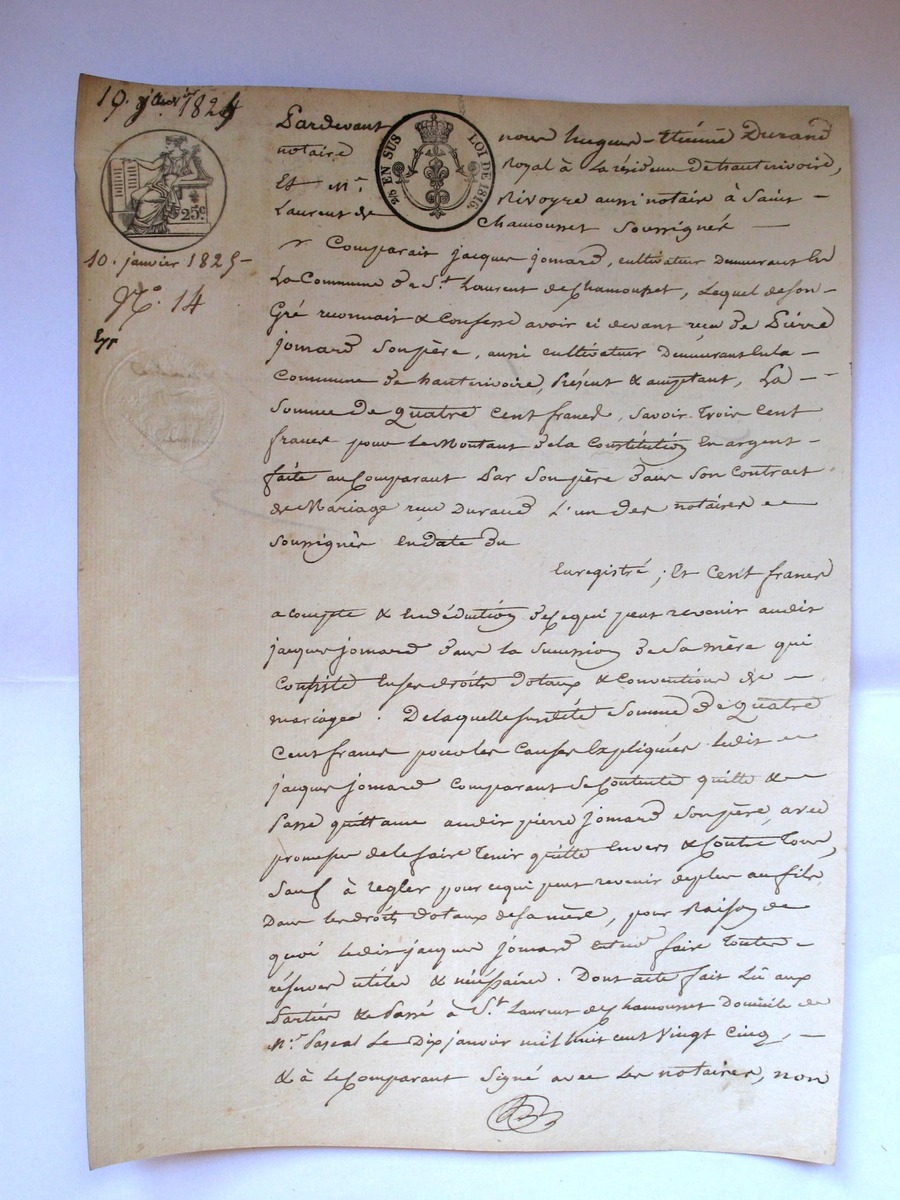 10. janvier 1825
25c.
25 EN SUS LOI DE 1816.
10. janvier 1825 -
N.o 14
Pardevant nous hugues - Etienne Durand
notaire Royal à la résidence de hauterivoire,
Et M.e Rivoyre aussi notaire à Saint -
Laurent de Chamousset soussignés —
Comparait jacques jomard, cultivateur demeurant en
La Commune de S.t Laurent de Chamousset, Lequel de son -
Gré reconnait & Confesse avoir ci devant reçu de Pierre
jomard son père, aussi cultivateur demeurant en la -
Commune de hauterivoire, présent & acceptant, La - -
Somme de quatre cent francs, savoir trois cent
francs pour le Montant de la Constitution en argent -
faite au Comparant Par son père dans son Contract
de Mariage reçu Durand L'un des notaires —
soussignés en date du
Enregistré ; Et Cent francs
a compte & en déduction de ce qui peut revenir audit
jacques jomard dans la succession de sa mère qui
Consiste en ses droits dotaux & conventions de -
mariage. De laquelle susditte somme de quatre
cent francs pour les Causes Expliquées ledit —
jacques jomard comparant se Contente quitte &
Passe quittance audit pierre jomard son père, avec
promesse de le faire tenir quitte Envers & Contre tous,
sauf à regler pour ce qui peut revenir de plus au fils
Dans les droits dotaux de sa mère, pour Raison de
quoi ledit jacques jomard faire toutes -
réserves utiles & nécéssaires. Dont acte fait Lû aux
Parties & Passé à S.t Laurent de Chamousset Domicile de
M.r Pascal Le Dix janvier mil huit cent Vingt Cinq, —
& à le Comparant Signé avec les notaires, non